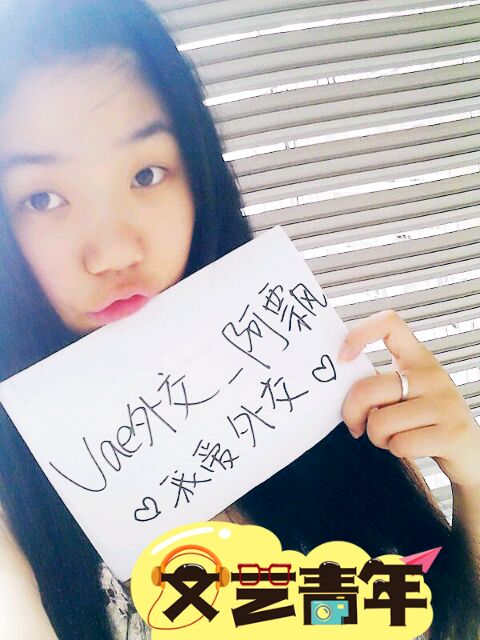 Vae外交_阿飘
♡我爱外交♡
文艺青年